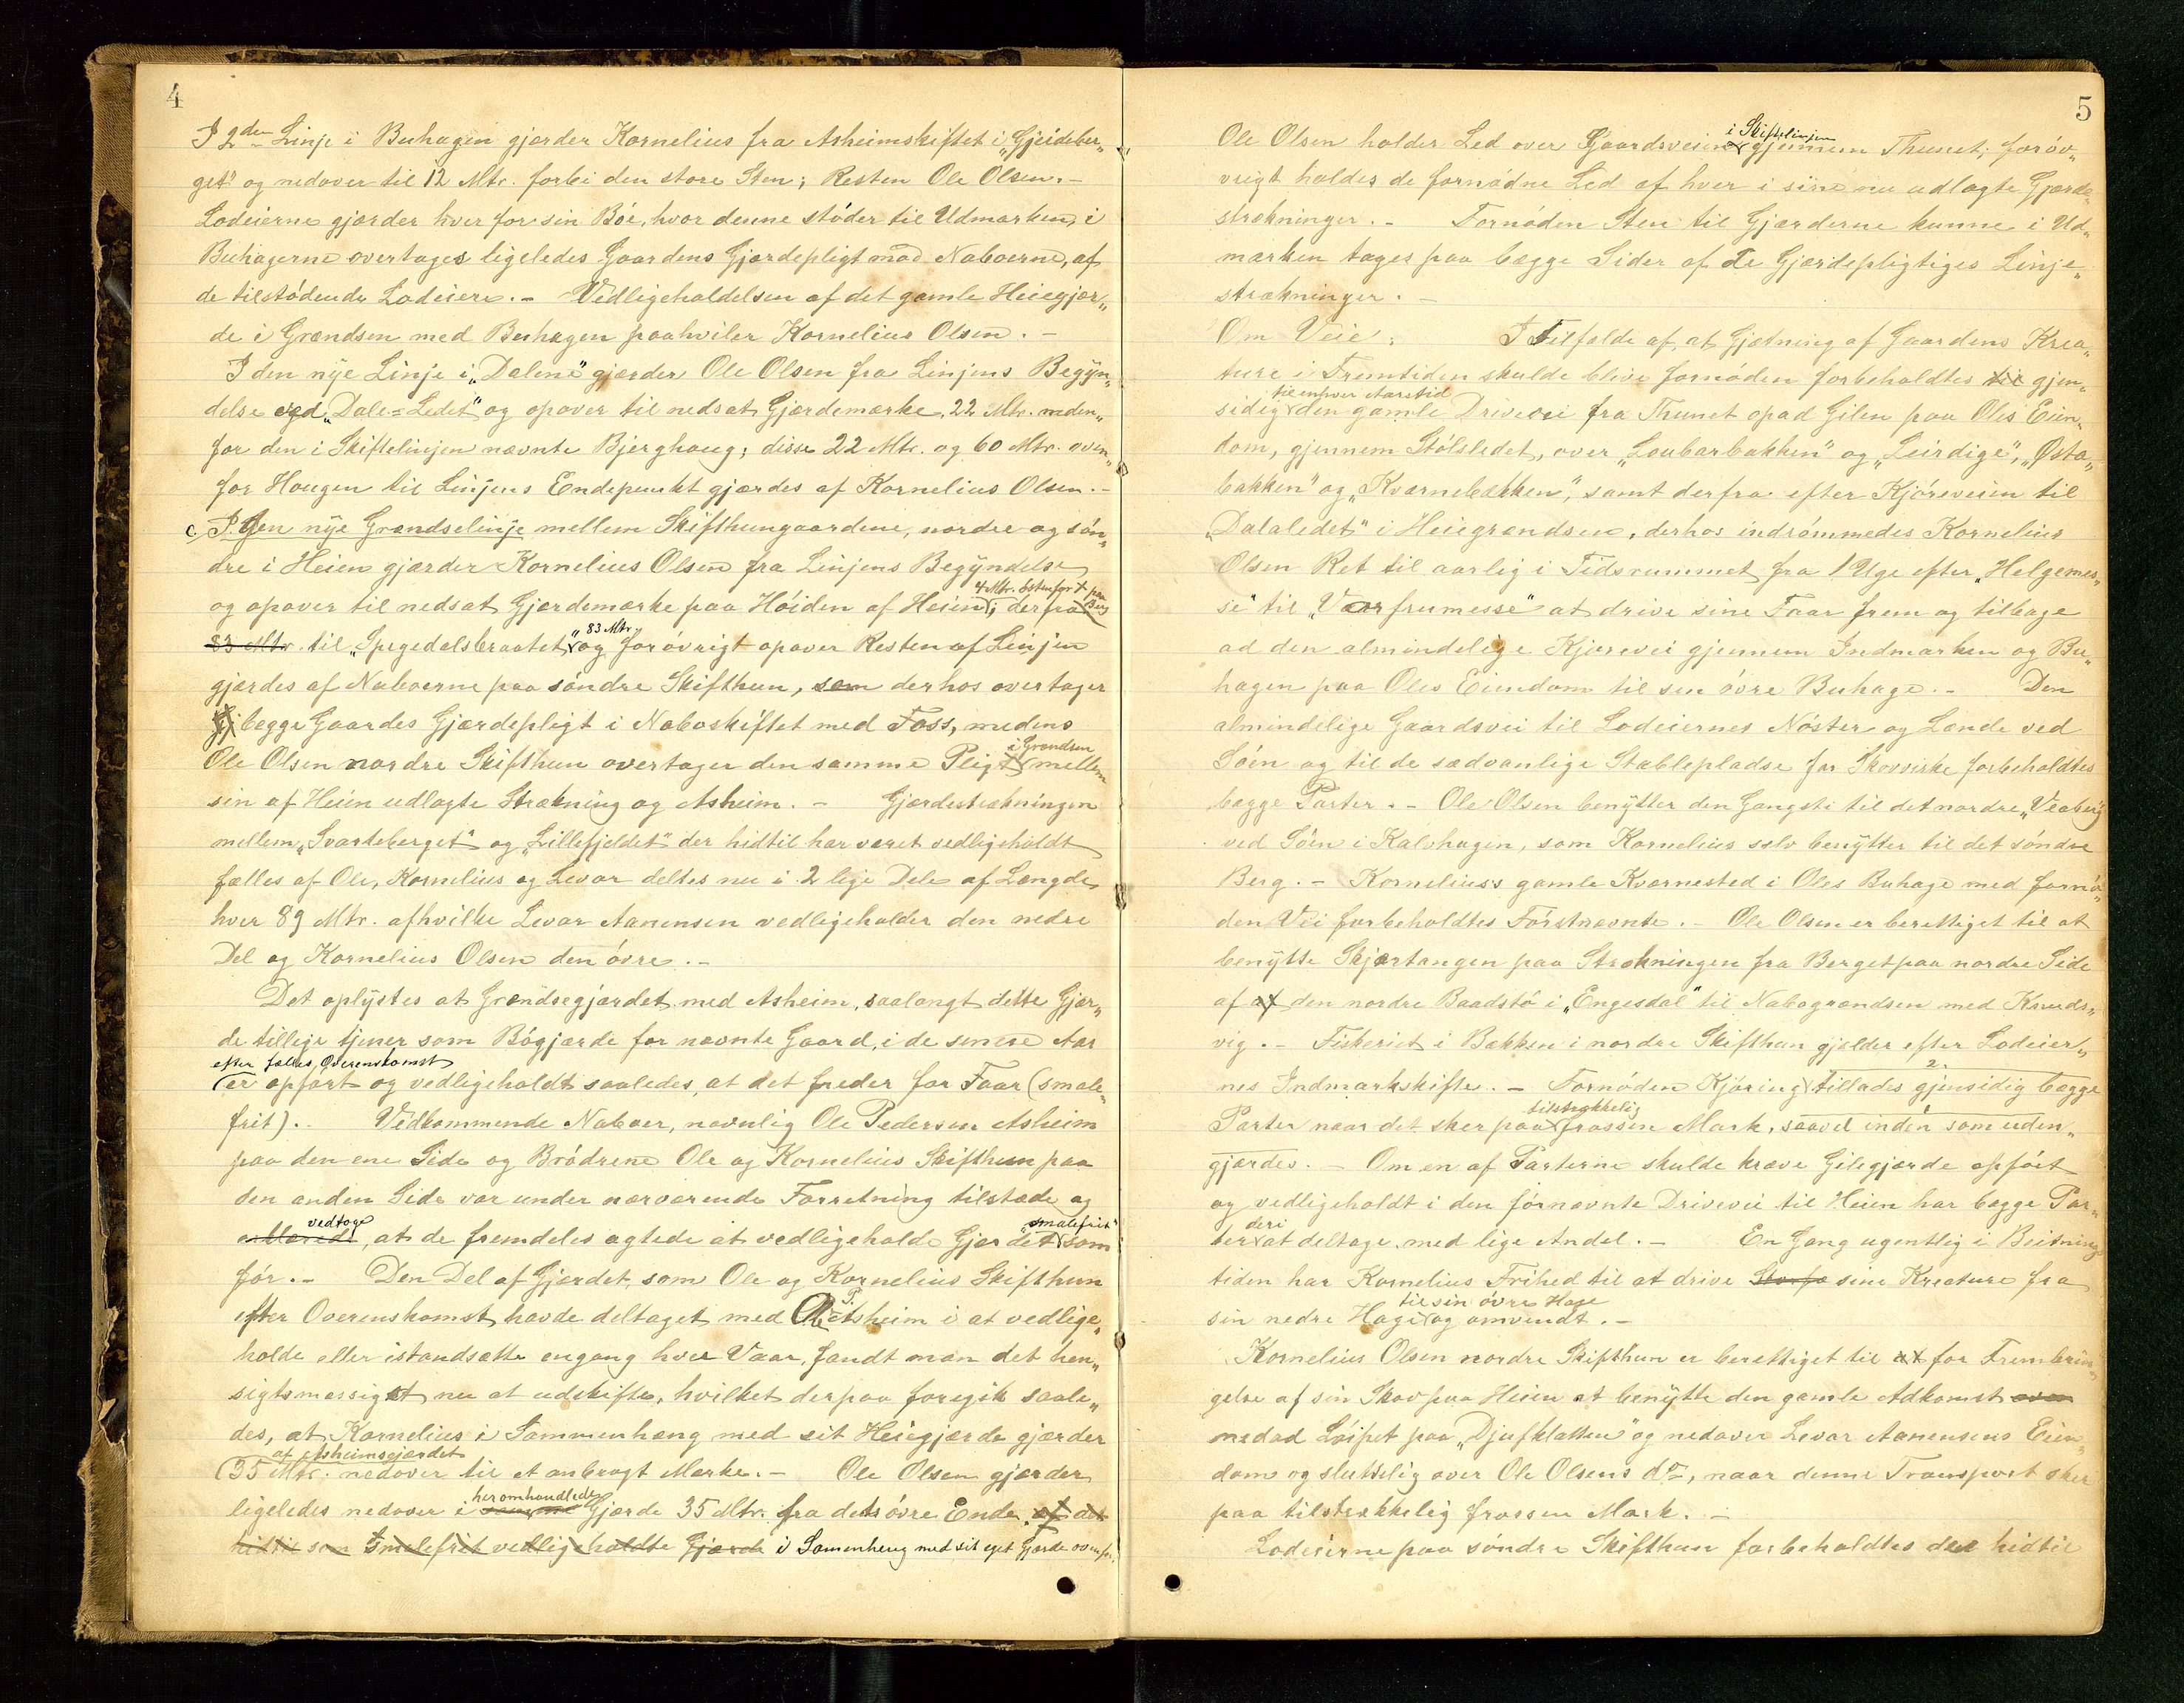 4
I 2den Linje i Buhagen gjærder Kornelius fra Asheimskiftet i „Gjeideber„
get" og nedover til 12 Mtr. forbi den store Sten; Resten Ole Olsen. -
Lodeierne gjærder hver for sin Bøe, hvor denne støder til Udmarken, i
Buhagerne overtages ligeledes Gaardens Gjærdepligt mod Naboerne, af
de tilstødende Lodeiere. - Vedligeholdelsen af det gamle Heiegjær„
de i Grændsen med Buhagen paahviler Kornelius Olsen. -
I den nye Linje i „Dalene" gjærder Ole Olsen fra Linjens Begyn„
delse ved „Dale=Ledet" og opover til nedsat Gjærdemærke, 22 Mtr. neden„
for den i Skiftelinjen nævnte Bjerghaug; disse 22 Mtr. og 60 Mtr. oven„
for Haugen til Linjens Endepunkt gjærdes af Kornelius Olsen. -
c. I den nye Grændselinje mellem Skifthungaardene, nordre og søn„
dre i Heien gjærder Kornelius Olsen fra Linjens Begyndelse
4 Mtr. østenfor + paa Berg
og opover til nedsat Gjærdemærke paa Høiden af Heien; derfra
83 Mtr.
83 Mtr. til „Spegedalsbraatet" og forøvrigt opover Resten af Linjen
gjærdes af Naboerne paa søndre Skifthun, som derhos overtager
begge Gaardes Gjærdepligt i Naboskiftet med Foss, medens
i Grændsen
Ole Olsen nordre Skifthun overtager den samme Pligt mellem
sin af Heien udlagte Strækning og Asheim. - Gjærdestrækningen
mellem „Svarteberget" og „Lillefjeldet" der hidtil har været vedligeholdt
fælles af Ole, Kornelius og Levor deltes nu i 2 lige Dele af Længde
hver 89 Mtr. afhvilke Levor Aanensen vedligeholder den nedre
Del og Kornelius Olsen den øvre. -
Det oplystes at Grændsegjærdet med Asheim, saalangt dette Gjær„
de tillige tjener som Bøgjærde for nævnte Gaard, i de senere Aar
efter fælles Overenskomst
er opført og vedligeholdt saaledes, at det freder for Faar (smale„
frit). Vedkommende Naboer, navnlig Ole Pedersen Asheim
paa den ene Side og Brødrene Ole og Kornelius Skifthun paa
den anden Side var under nærværende Forretning tilstæde og
vedtoge „smalefrit"
erklærede, at de fremdeles agtede at vedligeholde Gjærdet som
før. - Den Del af Gjærdet, som Ole og Kornelius Skifthun
P.
efter Overenskomst havde deltaget med Ole Asheim i at vedlige„
holde eller istandsætte engang hver Vaar, fandt man det hen„
sigtsmæssigst nu at udskifte, hvilket derpaa foregik saale„
des, at Kornelius i Sammenhæng med sit Heiegjærde gjærder
af Asheimsgjærdet
35 Mtr. nedover til et anbragt Mærke. - Ole Olsen gjærder
heromhandlede
ligeledes nedover i samme Gjærde 35 Mtr. fra dets øvre Ende af det
hidtil som smalefrit vedligeholdte Gjærde i Samenheng med sit eget Gjærde ovenfor.
5
i Skiftelinjen
Ole Olsen holder Led over Gaardsveien gjennem Thunet; forøv„
vrigt holdes de fornødne Led af hver i sine nu udlagte Gjærde„
strækninger. - Fornøden Sten til Gjærderne kunne i Ud„
marken tages paa begge Sider af de Gjærdepligtiges Linje„
strækninger. -
Om Veie: I Tilfælde af, at Gjætning af Gaardens Krea„
ture i Fremtiden skulde blive fornøden forbeholdtes til gjen„
til enhver Aarstid
sidig den gamle Drivevei fra Thunet opad Gilen paa Oles Eien„
dom, gjennem Stølsledet, over „Loubarbakken" og „Leirdige", „Østa„
bakken" og „Kværnebækken", samt derfra efter Kjøreveien til
„Dalaledet" i Heiegrændsen, derhos indrømmedes Kornelius
Olsen Ret til aarlig i Tidsrummet fra 1 Uge efter „Helgemes„
se" til „Vaarfrumesse" at drive sine Faar frem og tilbage
ad den almindelige Kjørevei gjennem Indmarken og Bu„
hagen paa Oles Eiendom til sin øvre Buhage. - Den
almindelige Gaardsvei til Lodeiernes Nøster og Lænde ved
Søen og til de sædvanlige Stablepladse for Skovvirke forbeholdtes
begge Parter. - Ole Olsen benytter den Gangsti til det nordre „Veaberg"
ved Søen i Kalvhagen, som Kornelius selv benytter til det søndre
Berg. - Kornelius's gamle Kværnested i Oles Buhage med fornø„
den Vei forbeholdtes Førstnævnte. - Ole Olsen er berettiget til at
benytte Skjærtangen paa Strækningen fra Berget paa nordre Side
af af den nordre Baadstø i „Engesdal" til Nabogrændsen med Knuds„
vig. - Fiskeriet i Bækken i nordre Skifthun gjælder efter Lodeier„
2.
nes Indmarkskifte. - Fornøden Kjøring tillades gjensidig begge
tilstrækkelig
Parter naar det sker paa frossen Mark, saavel inden som uden„
gjærdes. - Om en af Parterne skulde kræve Gilegjærde opført
og vedligeholdt i den førnævnte Drivevei til Heien har begge Par„
deri
ter at deltage med lige Andel. - En Gang ugentlig i Beitnings
tiden har Kornelius Frihed til at drive Storfæ sine Kreature fra
til sin øvre Hage
sin nedre Hage og omvendt. -
Kornelius Olsen nordre Skifthun er berettiget til at for Frembrin„
gelse af sin Skov paa Heien at benytte den gamle Adkomst over
nedad Løipet paa „Djufklatten" og nedover Levor Aanensens Eien„
dom og sluttelig over Ole Olsens do, naar denne Transport sker
paa tilstrækkelig frossen Mark. -
Lodeierne paa søndre Skifthun forbeholdtes den hidtil